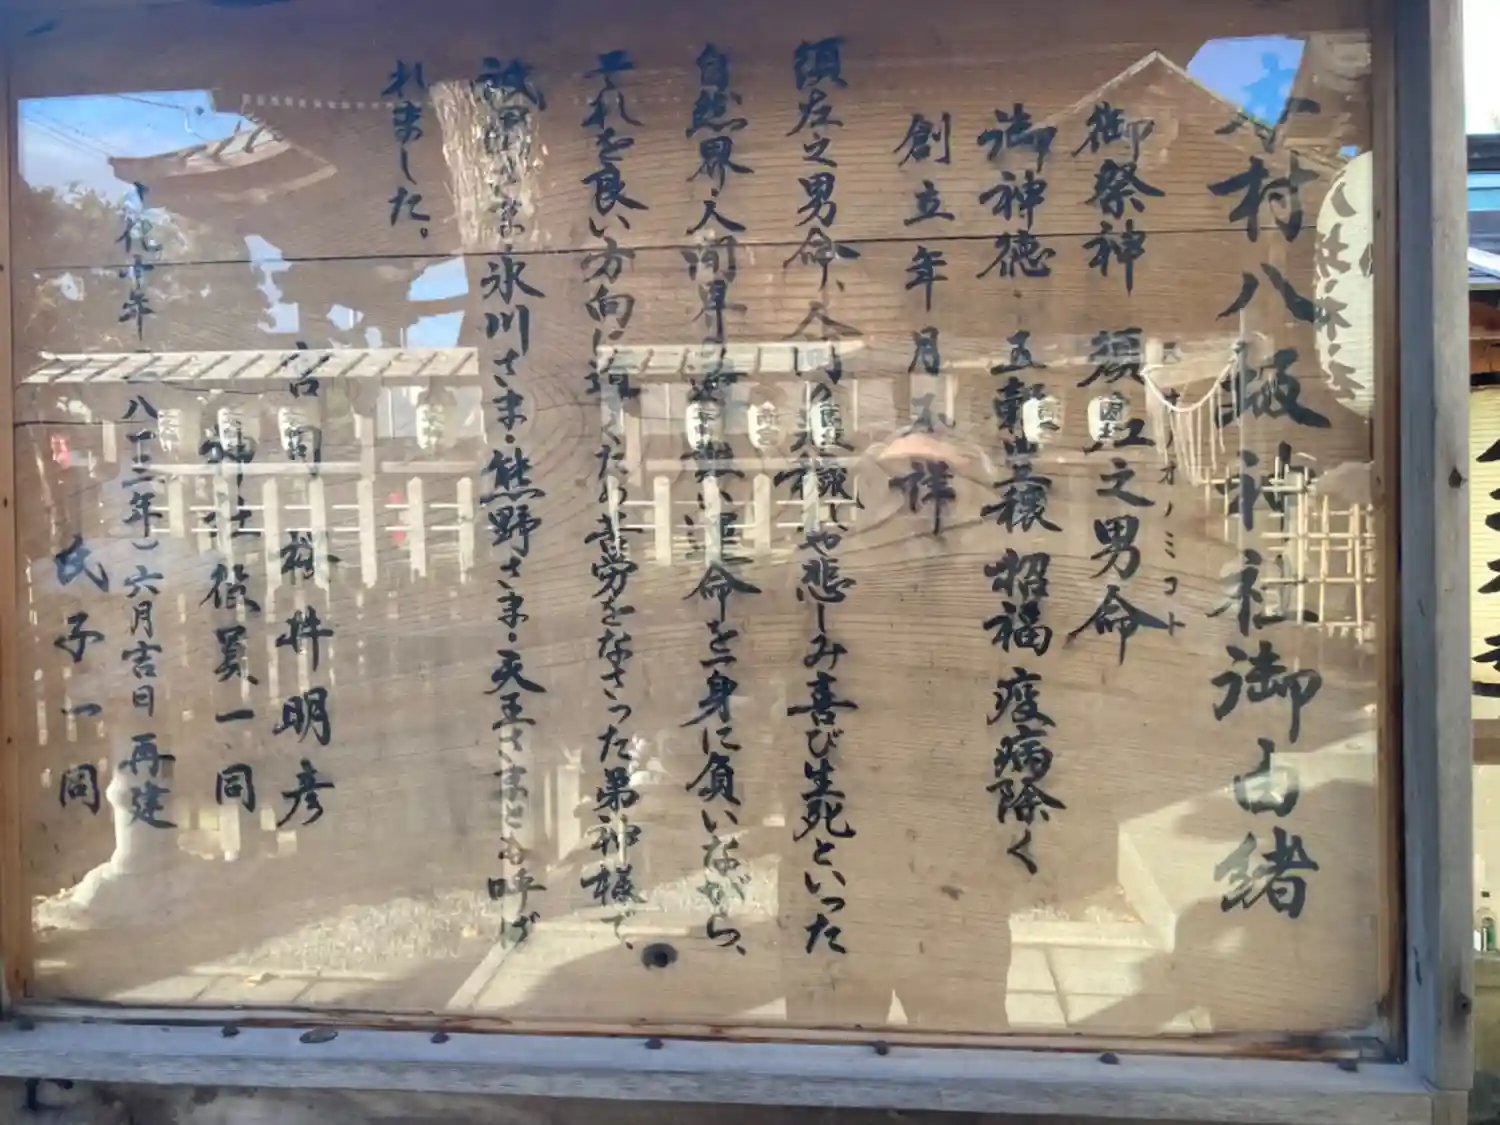 本村八坂神社御由緒
御祭神 須佐之男命
スサノオノミコト
御神徳 五穀豊穣 招福 疫病除く
創立年月不詳
須左之男命、人間の
や悲しみ喜び生死といった
自然界・人間界の
い運命を一身に負いながら、
それを良い方向に導くため苦労をなさった弟神様で、
氷川さま・熊野さま・天王さまとも呼ば
れました。
宮司 明彦
神社役員一同
文化十年(一八一三年)六月吉日再建
氏子一同